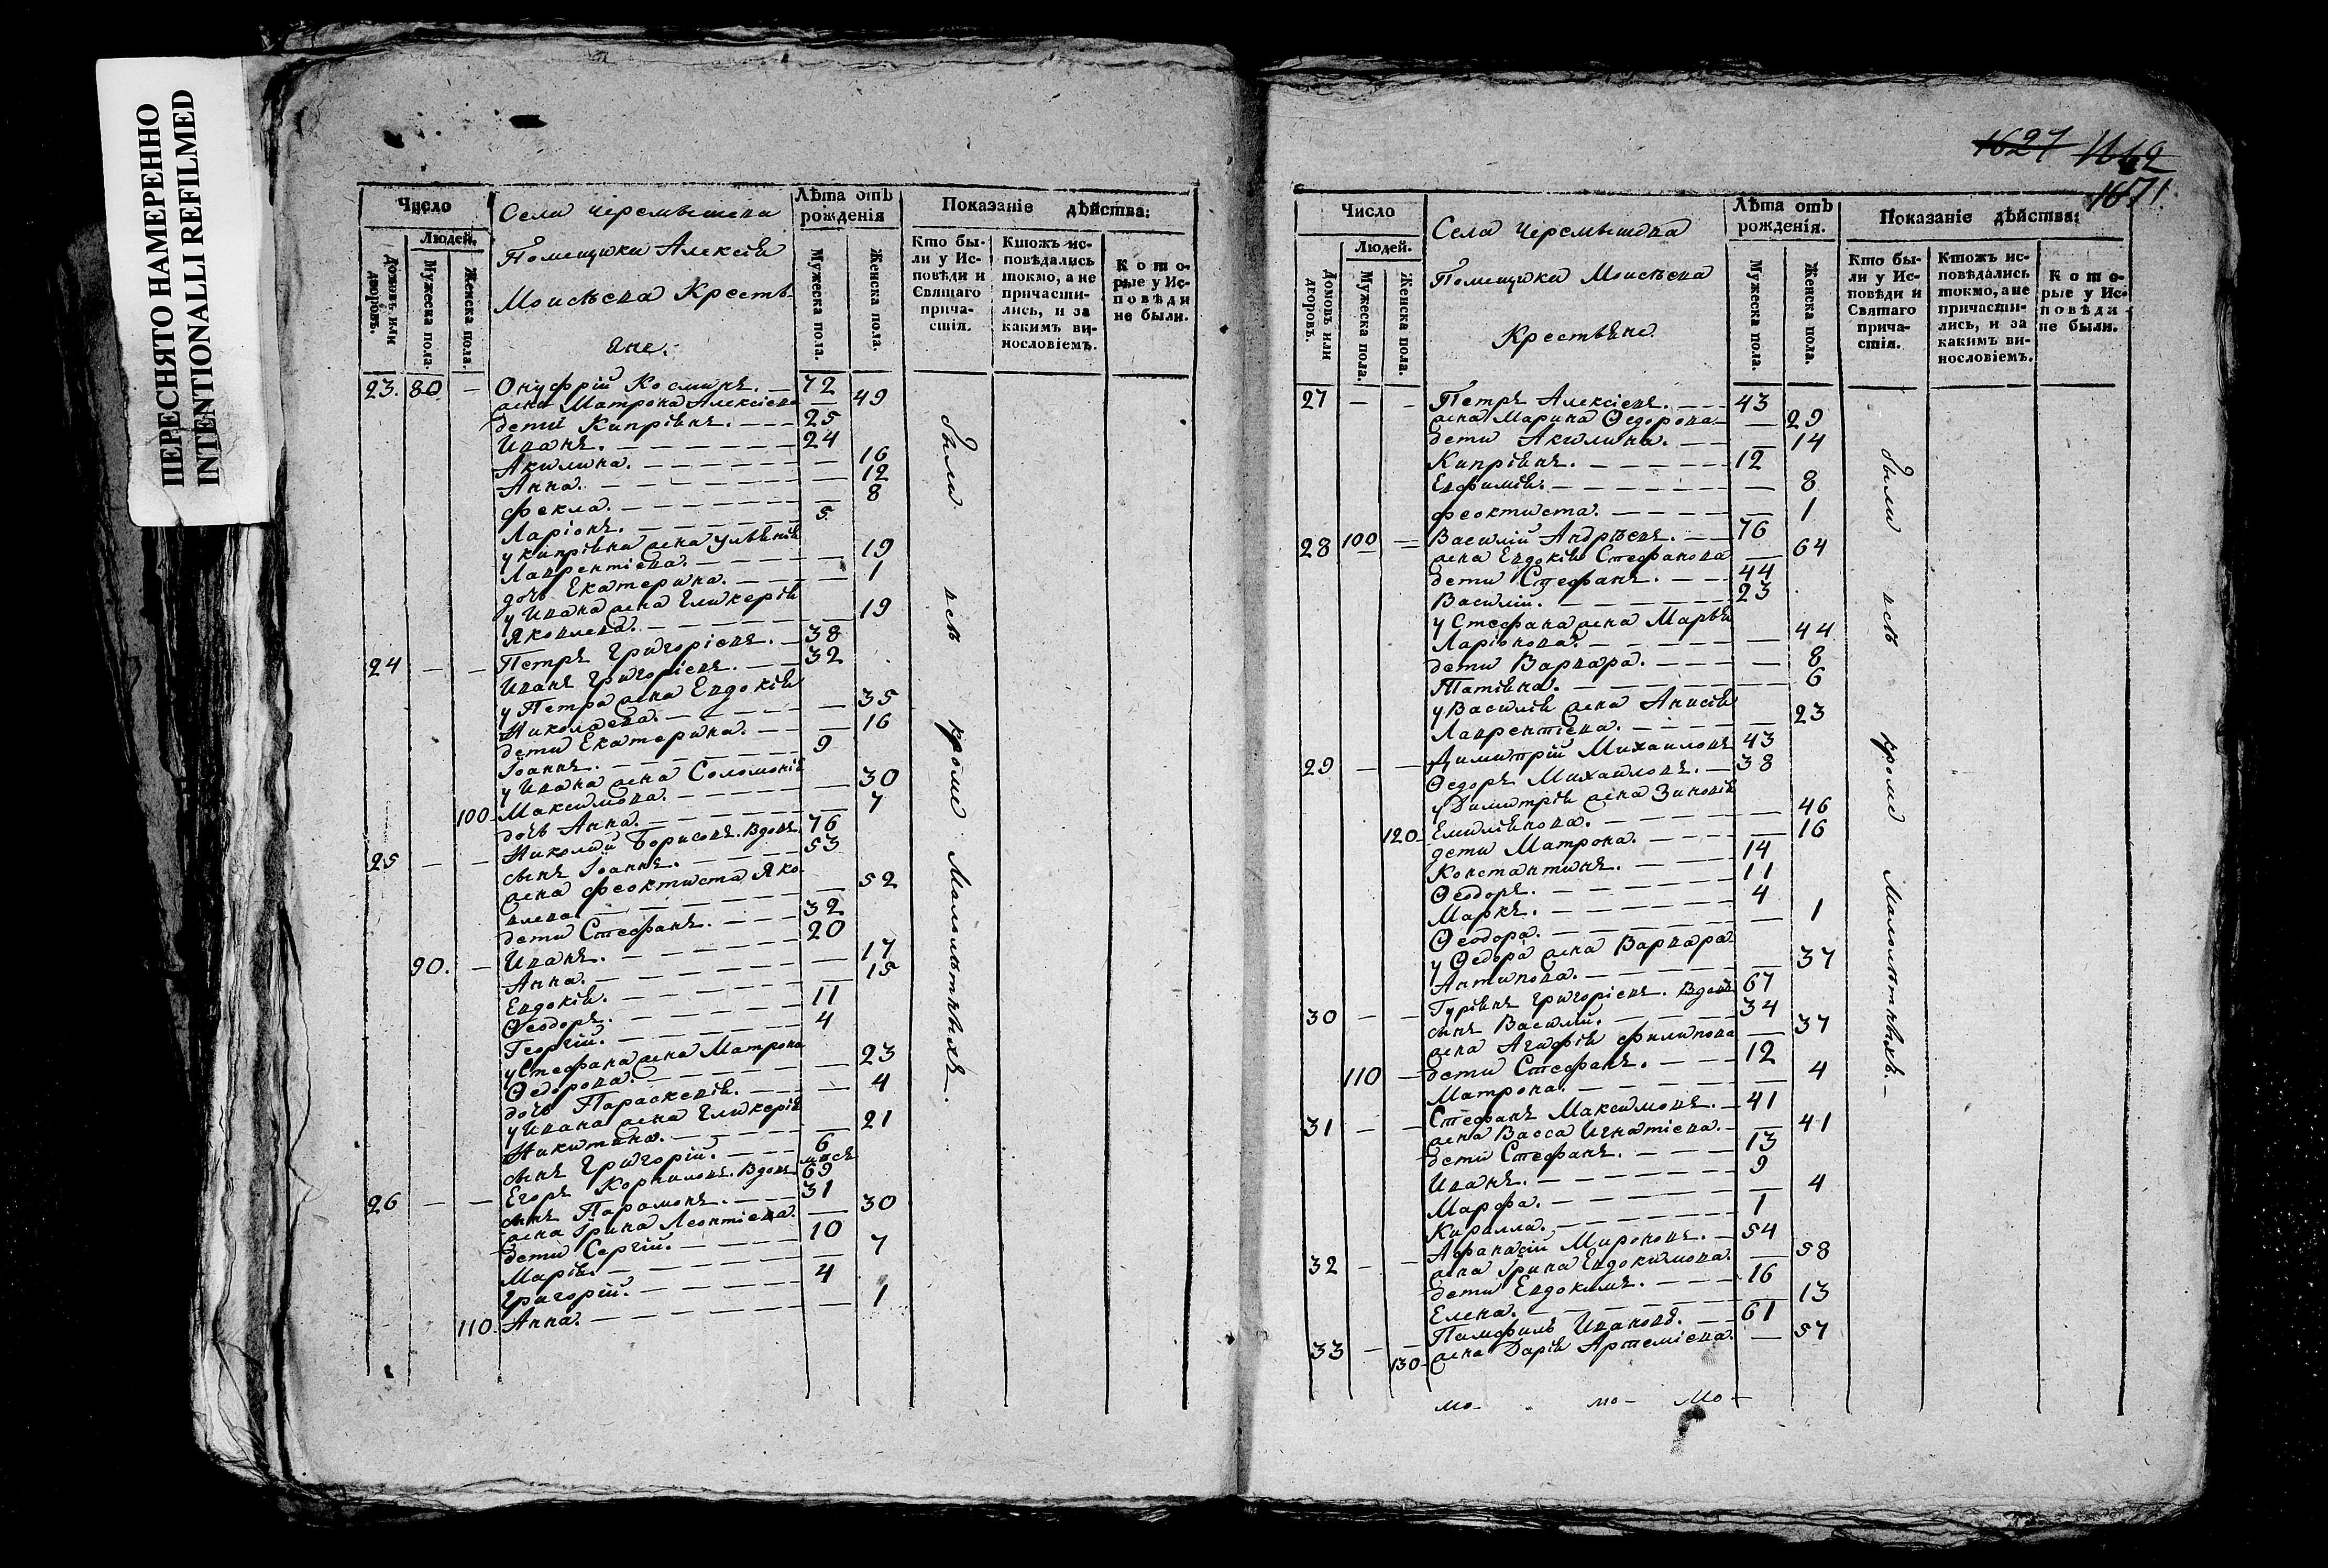 ПЕРЕСНЯТО НАМЕРЕННО
INTENTIONALLI REFILMED
Число
Людей.
Домовъ или дворовъ.
Мужеска пола.
Женска пола.
Села Черемышева
Помещика Алексея
Моисѣева Крестьяне.
Лѣта отъ рожденія
Мужеска пола.
Женска пола.
Показаніе дѣйства:
Кто были у Исповѣди и Святаго причастія.
Ктожъ исповѣдались токмо, а не причастились, и за какимъ винословіемъ.
Которые у Исповѣди не были.
23. 80 — Онуфрій Косминъ. — 72
жена Матрона Алексіева — 49
дети Кипріянъ. — 25
Иванъ. — 24
Акилина. — 16
Анна. — 12
Фекла. — 8
Ларіонъ. — 5
у Кипріяна жена Ульянія
Лаврентіева. — 19
дочь Екатерина. — 1
у Ивана жена Гликерія
Яковлева. — 19
24 — — Петръ Григоріевъ. — 38
Иванъ Григоріевъ. — 32
у Петра жена Евдокія
Николаева. — 35
дети Екатерина. — 16
Іоаннъ. — 9
у Ивана жена Соломонія
100 Максимова. — 30
дочь Анна. — 7
25 — — Николай Борисовъ. Вдовъ 76
сынъ Іоаннъ. — 53
жена Феоктиста Яко-
влева. — 52
дети Стефанъ. — 32
90. — Иванъ. — 20
Анна. — 17
Евдокія. — 15
Ѳеодоръ. — 11
Георгій. — 4
у Стефана жена Матрона
Ѳедорова. — 23
дочь Параскевія. — 4
у Ивана жена Гликерія
Никитина. — 21
сынъ Григорій. — 6 мѣсе
26 — — Егоръ Корниловъ. Вдовъ 69
сынъ Парамонъ. — 31
жена Ірина Леонтіева. — 30
дети Сергій. — 10
Марія. — 7
Григорій. — 4
110 Анна. — 1
Были всѣ кроме Малолѣтныхъ.
1627 1662
1671.
Число
Людей.
Домовъ или дворовъ.
Мужеска пола.
Женска пола.
Села Черемышева
Помещика Моисѣева
Крестьяне.
Лѣта отъ рожденія.
Мужеска пола.
Женска пола.
Показаніе дѣйства:
Кто были у Исповѣди и Святаго причастія.
Ктожъ исповѣдались токмо, а не причастились, и за какимъ винословіемъ.
Которые у Исповѣди не были.
27 — — Петръ Алексіевъ. — 43
жена Марина Ѳедорова — 29
дети Акилина. — 14
Кипріянъ. — 12
Евфимія. — 8
Феоктиста. — 1
28 100 — Василій Андрѣевъ. — 76
жена Евдокія Стефанова — 64
дети Стефанъ. — 44
Василій. — 23
у Стефана жена Марья
Ларіонова. — 44
дети Варвара. — 8
Татіяна. — 6
у Василія жена Анисія
Лаврентіева. — 23
29 — — Димитрій Михаиловъ 43
Ѳедоръ Михаиловъ. — 38
у Димитрія жена Зиновія
120 Емиліянова. — 46
дети Матрона. — 16
Константинъ. — 14
Ѳеодоръ. — 11
Маркъ. — 4
Ѳеодора. — 1
у Ѳедора жена Варвара
Антипова. — 37
30 — — Гуріянъ Григоріевъ. Вдовъ 67
сынъ Василій. — 34
жена Агафія Филипова — 37
110 — дети Стефанъ. — 12
Матрона. — 4
31 — — Стефанъ Максимовъ. — 41
жена Васса Игнатіева. — 41
дети Стефанъ. — 13
Иванъ. — 9
Марфа. — 4
Кирилла. — 1
32 — — Афанасій Мироновъ. — 54
жена Ірина Евдокимова. — 58
дети Евдокимъ. — 16
Елена. — 13
33 — — Памфилъ Ивановъ. — 61
130 жена Дарія Артеміева. — 57
Были всѣ кроме Малолѣтныхъ.
мо- мо- Мо-